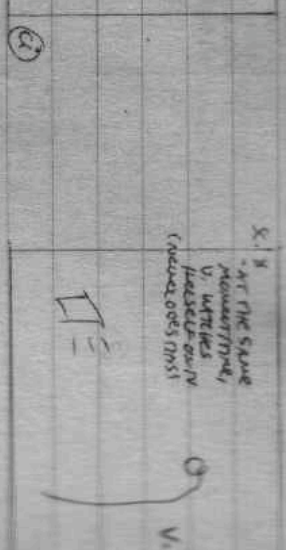 & Y
- AT THE SAME
MOMENT/TIME,
V. WATCHES
HERSELF ON TV
(NEVER DOES THIS)
V.